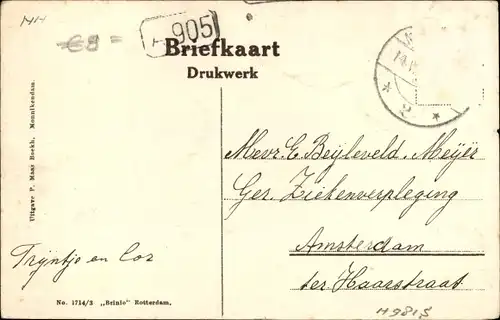 HH
€8 =
905
Briefkaart
Drukwerk
14
2
Uitgave P. Maas Boekh, Monnikendam.
Mevr. E. Beijleveld. Meyer
Gez. Ziekenverpleging
Amsterdam
ter Haarstraat
Trijntje en Cor
No. 1714/3 „Brinio" Rotterdam.
H981S